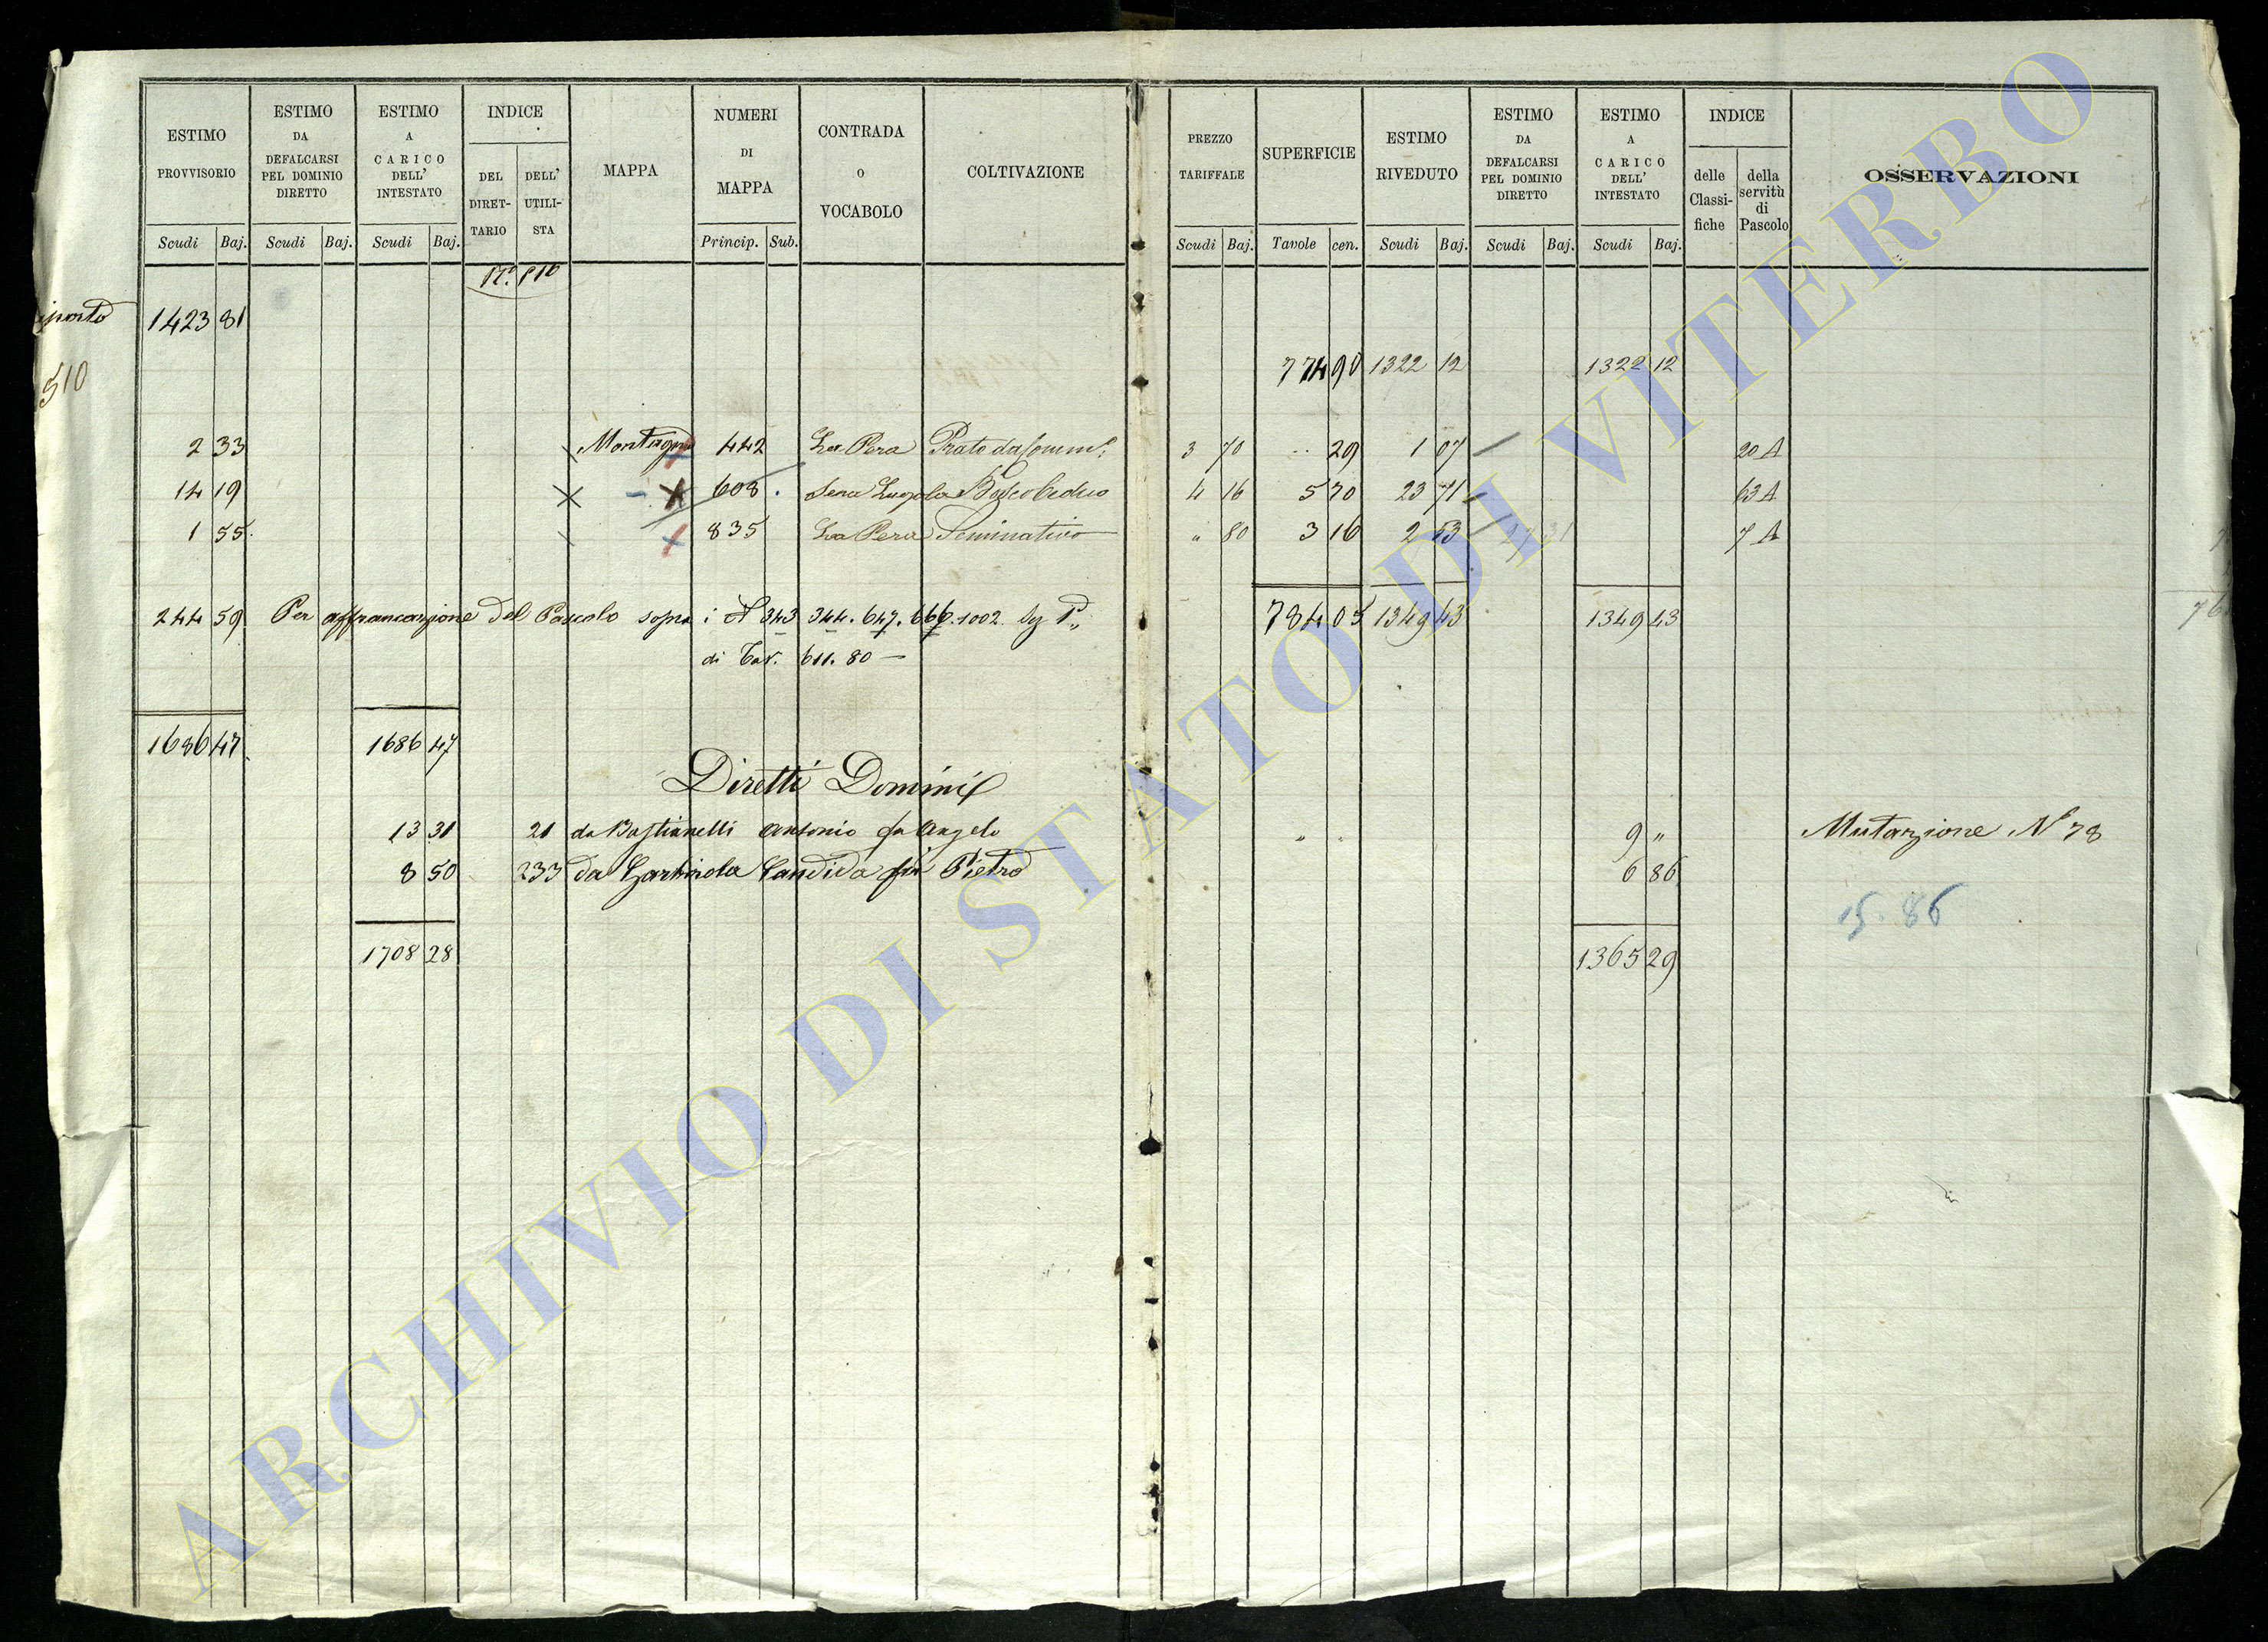 ESTIMO PROVVISORIO Scudi Baj. ESTIMO DA DEFALCARSI PEL DOMINIO DIRETTO Scudi Baj. ESTIMO A CARICO DELL' INTESTATO Scudi Baj. INDICE DEL DIRET-TARIO DELL' UTILI-STA MAPPA NUMERI DI MAPPA Princip. Sub. CONTRADA O VOCABOLO COLTIVAZIONE PREZZO TARIFFALE Scudi Baj. SUPERFICIE Tavole cen. ESTIMO RIVEDUTO Scudi Baj. ESTIMO DA DEFALCARSI PEL DOMINIO DIRETTO Scudi Baj. ESTIMO A CARICO DELL' INTESTATO Scudi Baj. INDICE delle Classi-fiche della servitù di Pascolo OSSERVAZIONI
iporto 1423 81
510
774 90 1322 12 1322 12
2 33 Montagna 442 La Pera Prato 3 70 29 1 07 20 A
14 19 608 4 16 5 70 23 71 63 A
1 55 835 La Pera Seminativo " 80 3 16 2 53 7 A
244 59 Per affrancazione del Pascolo sopra i N 343 344. 647. 666. 1002 784 05 1349 43 1349 43
di Tav. 611. 80 —
1686 47 1686 47
Diretti Dominii
13 31 21 da Bastianelli Antonio fu Angelo 9 " Mutazione N 78
8 50 233 da Candida fu Pietro 6 86
15. 86
1708 28 1365 29
ARCHIVIO DI STATO DI VITERBO